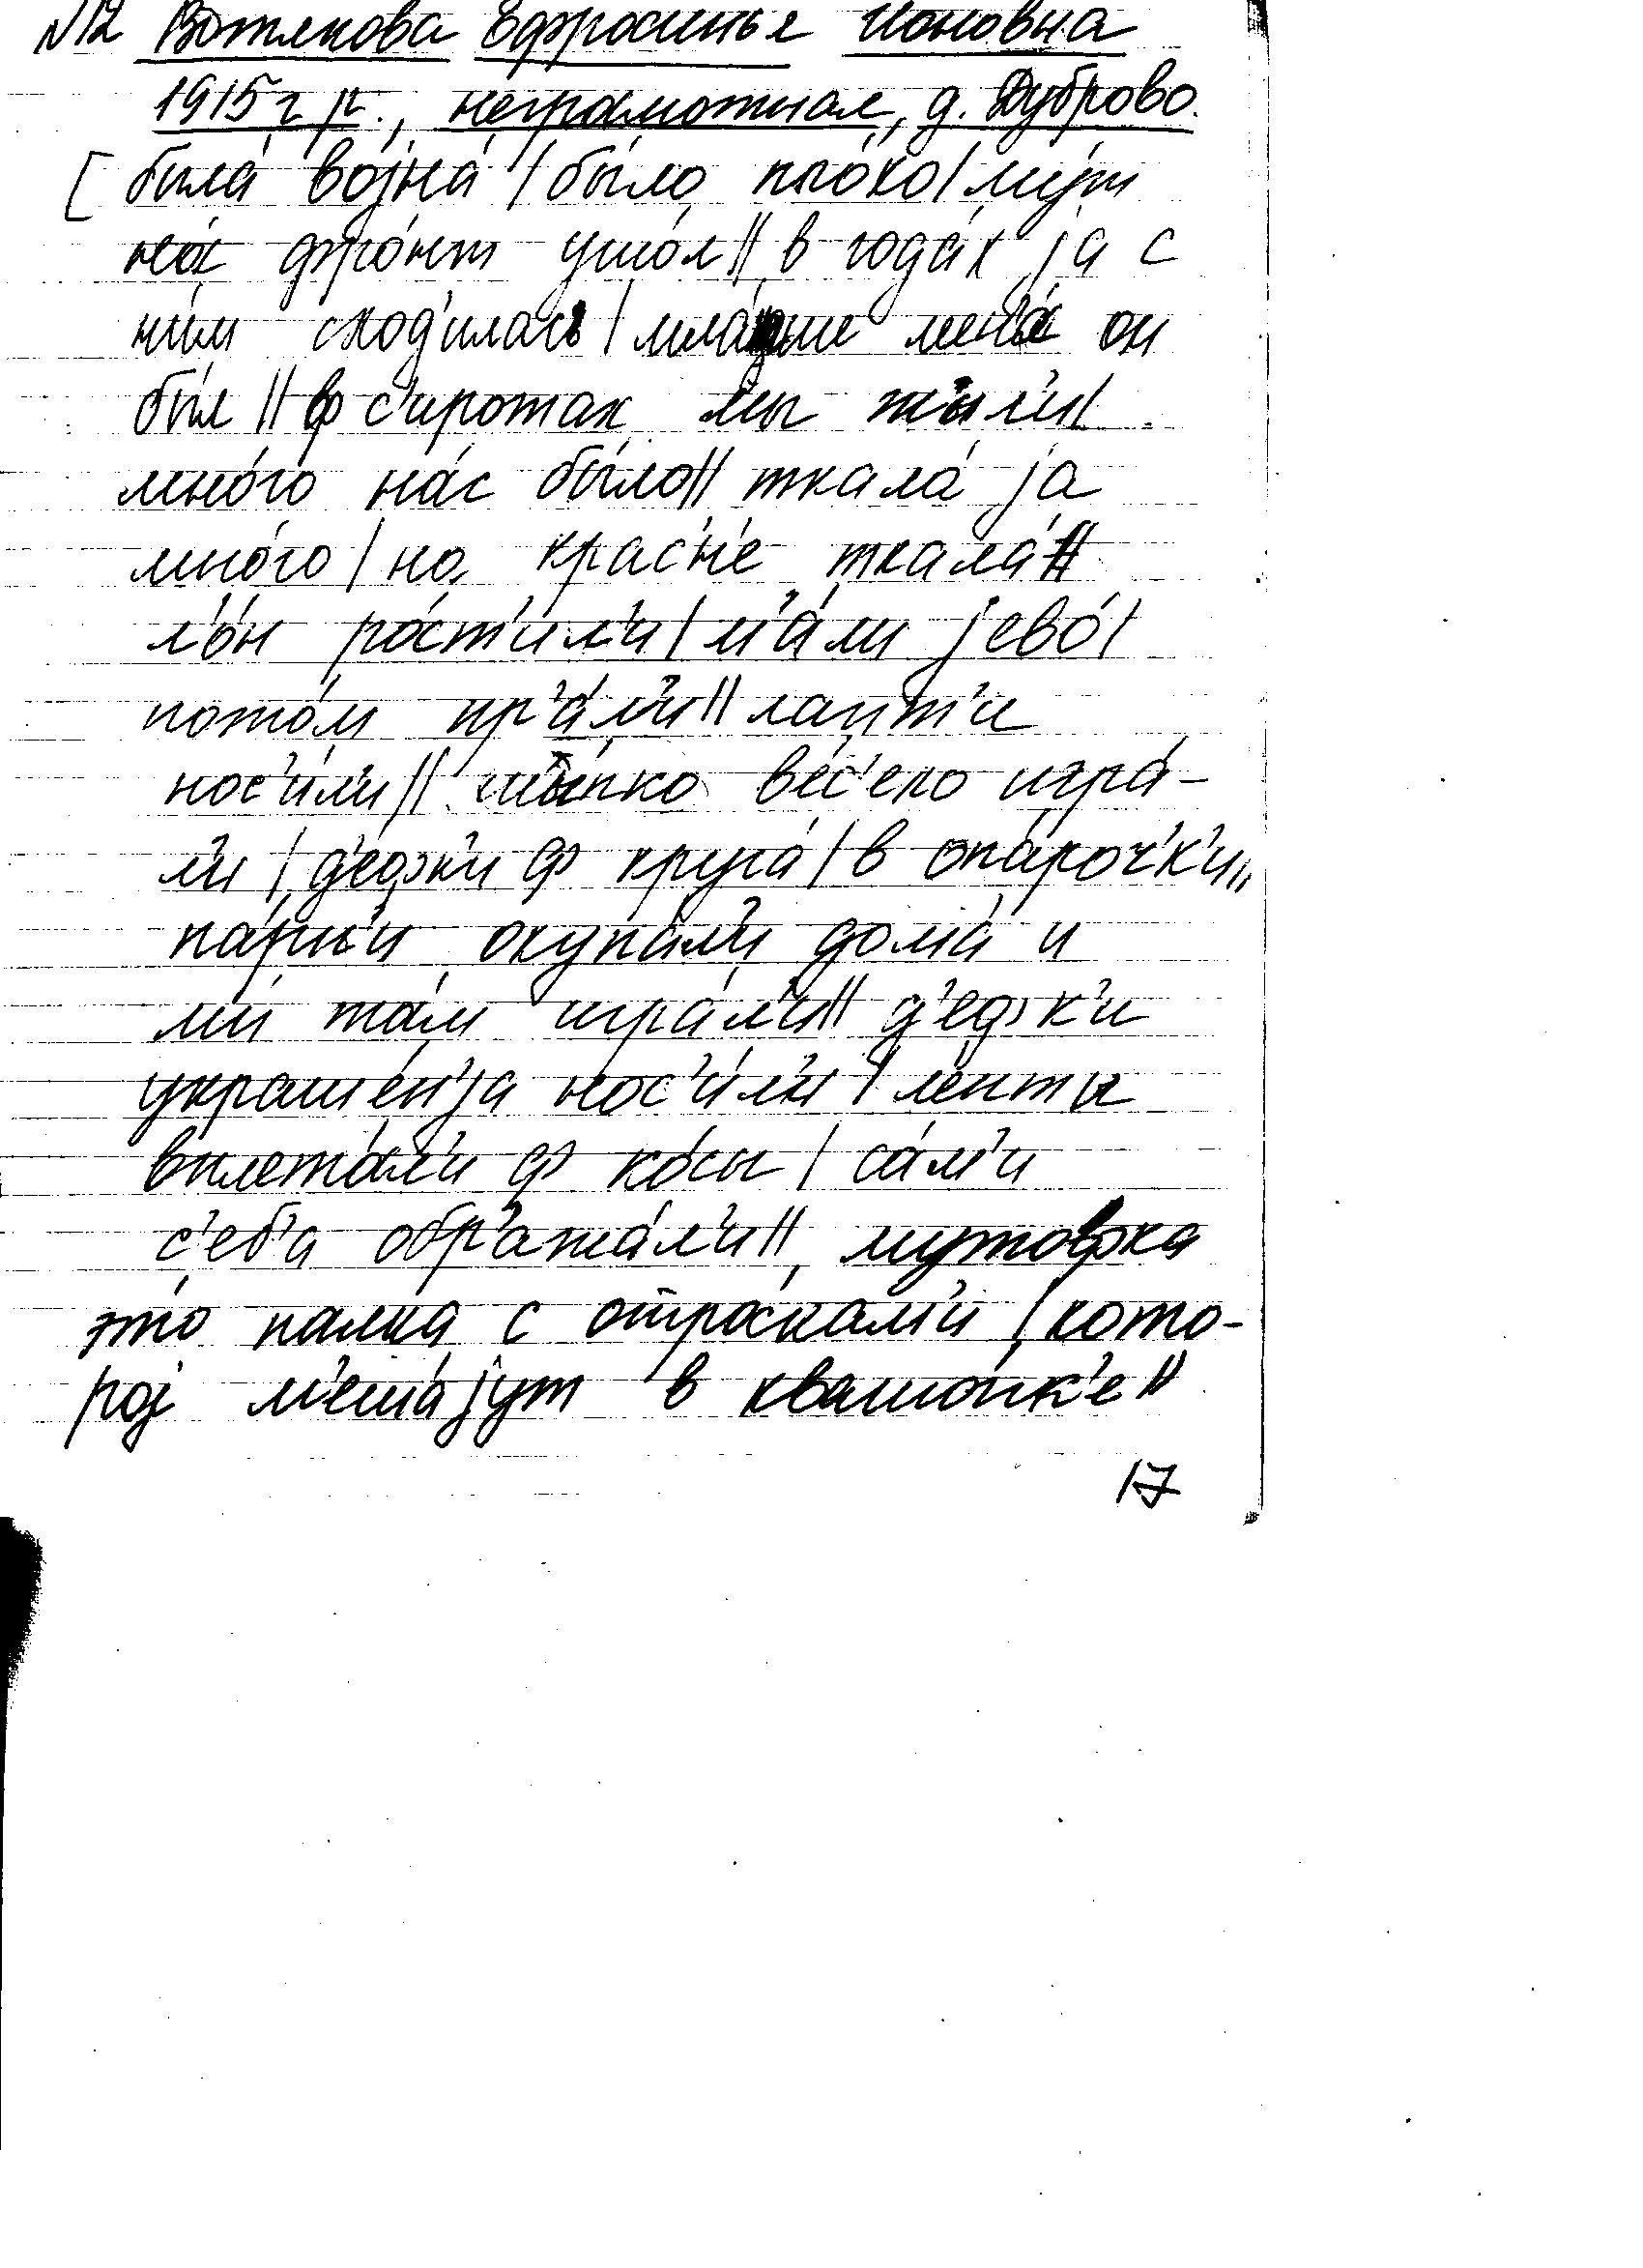 N12 Вотякова Ефросинья Ионовна
1915 г.р., неграмотная, д. Дуброво.
[ была́ војна́ / бы́ло пло́хо / му́ш
на́ фро́нт ушо́л // в года́х ја с
ни́м сход'илас' / мла́дше мен'а́ он
бы́л // ф с'иротах мы жы́л'и /
мно́го на́с бы́ло // ткала́ ја
мно́го / на кра́сне ткала́ //
л'о́н ро́ст'ил'и / м'а́ли јево́ /
пото́м пр'а́л'и // лапт'и
нос'и́ли // шы́пко ве́с'ело игра́-
ли / д'е́фки ф круга́ / в опа́рочк'и //
па́рн'и окупа́л'и дома́ и
мы́ та́м игра́л'и // д'ефк'и
украше́н'ја нос'и́л'и / ле́нты
вплета́л'и ф ко́сы / са́м'и
с'еб'а обр'ажа́л'и // мутовка
э́то палка с отро́скам'и / кото-
рој м'еша́јут в квашо́нк'е //
17